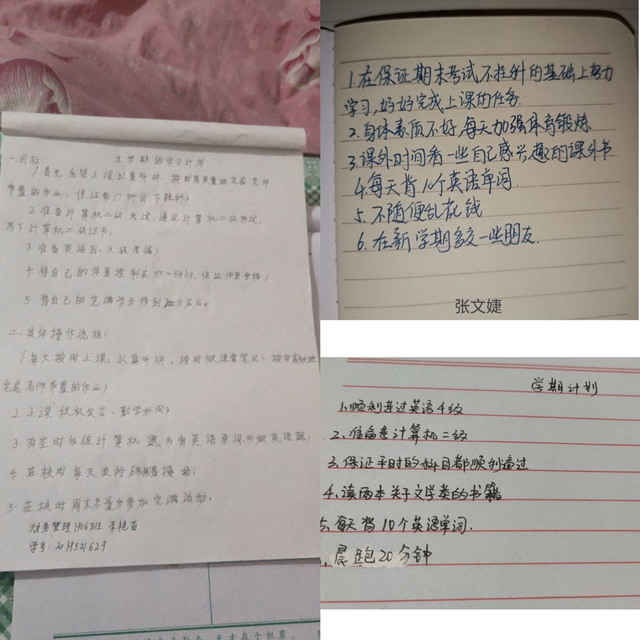 本学期的学习计划
一.目标:
1.首先会提上课认真听讲,按时高质量地完成老师
布置的作业,保证每门科目不挂科;
2.准备计算机二级考试,通过计算机二级考试,
拿下计算机二级证书;
3.准备英语四、六级考试;
4.将自己的体重控制在55~54kg,保证体重合格;
5.将自己的
二.具体操作流程:
1.每天按时上课,认真听讲,按时做课堂笔记,按时高质地
完成老师布置的作业;
2.上课积极发言、勤学好问;
3.有空时多练计算机
英语单词,多做英语题;
4.在校时每天坚持
5.在校时周末尽量多参加
财务管理1906班 李艳茹
学号:
1.在保证期末考试不挂科的基础上努力
学习,好好完成上课的任务.
2.身体素质不好,每天加强体育锻炼
3.课外时间看一些自己感兴趣的课外书
4.每天背10个英语单词.
5.不随便乱花钱
6.在新学期多交一些朋友.
张文婕
学期计划
1.顺利考过英语4级
2.准备考计算机二级
3.保证平时的科目都顺利通过
4.读两本关于文学类的书籍
5.每天背10个英语单词.
晨跑20分钟